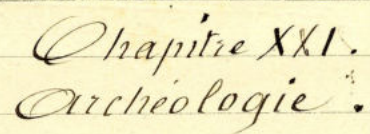 Chapitre XXI.
Archéologie.